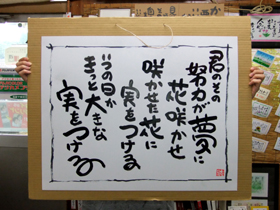 君のその
努力が夢に
花咲かせ
咲かせた花に
実をつける
いつの日か
きっと大きな
実をつける